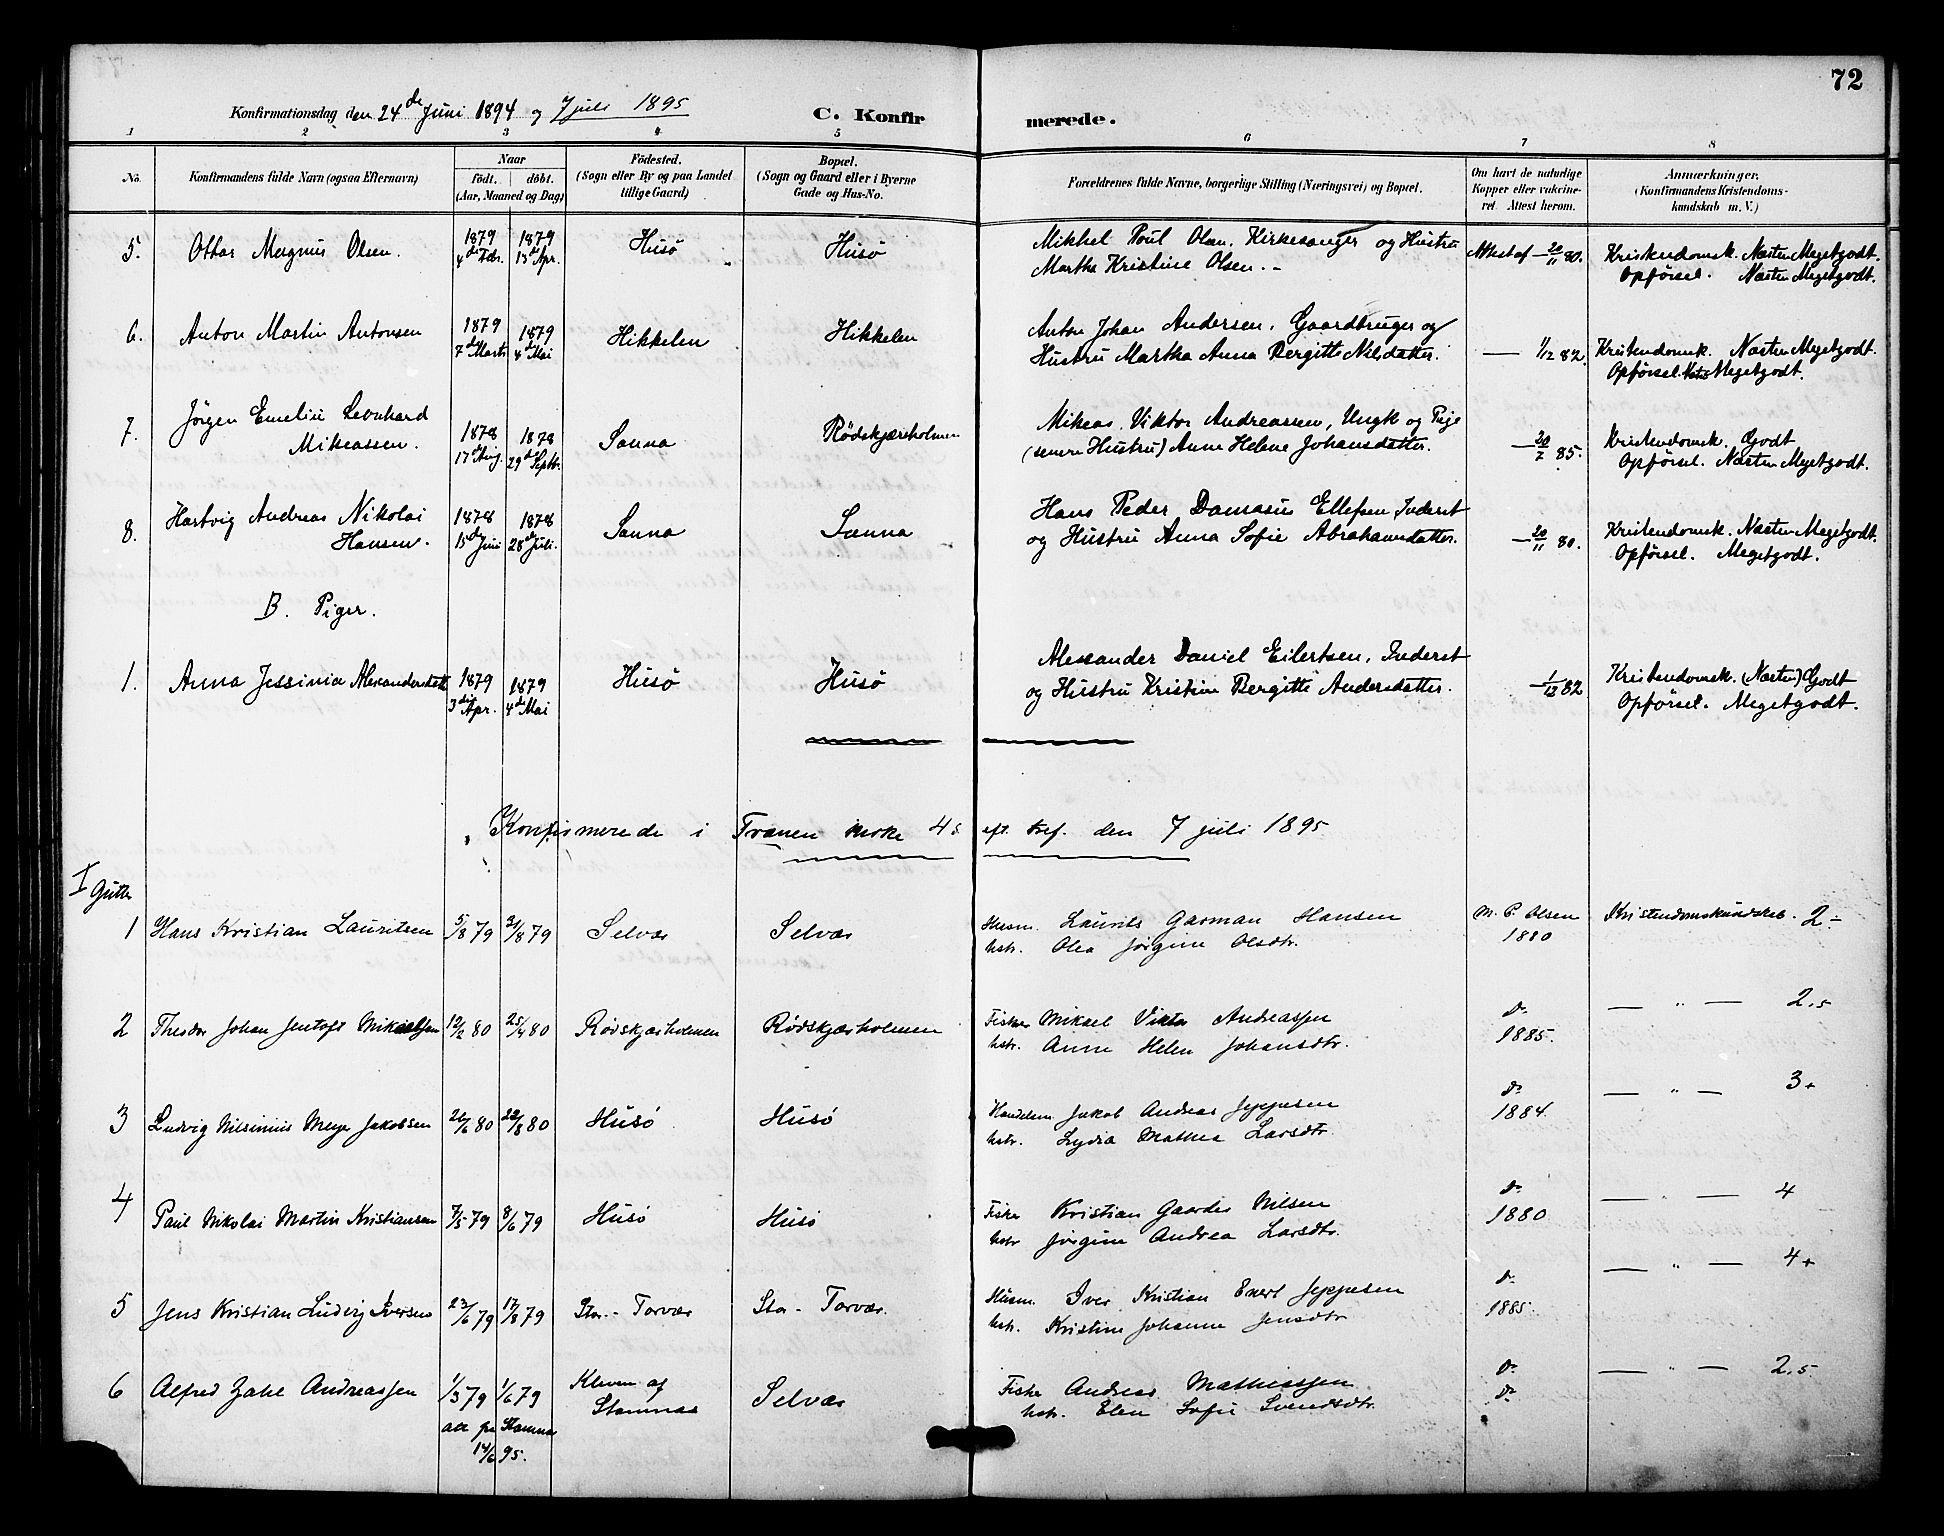 72
Konfirmationsdag den 24de Juni 1894 og 7 juli 1895
C. Konfirmerede.
1 2 3 4 5 6 7 8
No.
Konfirmandens fulde Navn (ogsaa Efternavn)
Naar
født. døbt.
(Aar, Maaned og Dag)
Födested.
(Sogn eller By og paa Landet
tillige Gaard)
Bopæl.
(Sogn og Gaard eller i Byerne
Gade og Hus-No.
Forældrenes fulde Navne, borgerlige Stilling (Næringsvei) og Bopæl.
Om havt de naturlige
Kopper eller vakcine-
ret. Attest herom.
Anmærkninger.
(Konfirmandens Kristendoms-
kundskab m. V.)
5. Ottar Magnus Olsen. 1879 4de Febr. 1879 13de Apr. Husö Husö
Mikkel Poul Olsen, Kirkesanger og Hustru
Martha Kristine Olsen.
Attest af 20/11 80.
Kristendomsk. Næsten Megetgodt.
Opførsel. Næsten Megetgodt.
6. Anton Martin Antonsen 1879 7de Marts 1879 4de Mai Hikkelen Hikkelen
Anton Johan Andersen, Gaardbruger og
Hustru Martha Anna Bergitte Nilsdatter.
— 1/12 82.
Kristendomsk. Næsten Megetgodt.
Opførsel. Megetgodt.
7. Jörgen Emelius Leonhard
Mikeassen. 1878 17de Aug. 1878 29de Septb. Sanna Rödskjæreholmen
Mikeas Viktor Andreassen, Ungk og Pige
(senere Hustru) Anne Helene Johansdatter.
— 20/7 85.
Kristendomsk. Godt
Opførsel. Næsten Megetgodt.
8. Hartvig Andreas Nikolai
Hansen. 1878 15de Juni 1878 28de Juli. Sanna Sanna
Hans Peder Damasus Ellefsen, Inderst
og Hustru Anna Sofie Abrahamsdatter.
— 20/11 80.
Kristendomsk. Næsten Megetgodt.
Opførsel. Megetgodt.
B. Piger.
1. Anna Jessinia Alexandersdatt 1879 3die Apr. 1879 4de Mai Husö Husö
Alexander Daniel Eilertsen, Inderst
og Hustru Kristine Bergitte Andersdatter.
— 1/12 82
Kristendomsk. (Næsten) Godt
Opførsel. Megetgodt.
Konfirmerede i Trænen kirke 4 s. eft. tref. den 7 juli 1895
I Gutter
1 Hans Kristian Lauritsen 5/8 79 31/8 79 Selvær Selvær
Husm. Laurits Garman Hansen
hstr. Olea Jørgine Olsdtr.
M. P. Olsen
1880
Kristendomskundskab. 2÷
2 Theodor Johan Jentoft Mikaelsen 12/2 80 25/4 80 Rødskjærholmen Rødskjærholmen
Fisker Mikael Viktor Andreassen
hstr. Anne Helen Johansdtr.
do
1885.
— " — 2,5
3 Ludvig Nilsinius Meyer Jakobsen 26/6 80 22/8 80 Husø Husø
Handelsm Jakob Andreas Jeppesen
hstr. Lydia Mathea Larsdtr.
do
1884.
— " — 3+
4 Paul Nikolai Martin Kristiansen 7/5 79 8/6 79 Husø Husø
Fisker Kristian Gaarder Nilsen
hstr Jørgine Andrea Larsdtr.
do
1880
— " — 4
5 Jens Kristian Ludvig Iversen 23/6 79 17/8 79 Stor-Torvær Stor-Torvær.
Husm. Iver Kristian Evert Jeppesen
hstr. Kristine Johanne Jensdtr
do
1885.
— " — 4+
6 Alfred Zahl Andreassen 1/3 79 1/6 79 Kleven af
Stamnæs Selvær
att. pr Stamnæs
14/6 95.
Fisker Andreas Mathiassen
hstr. Elen Sofie Svendsdtr.
do
do
— " — 2,5